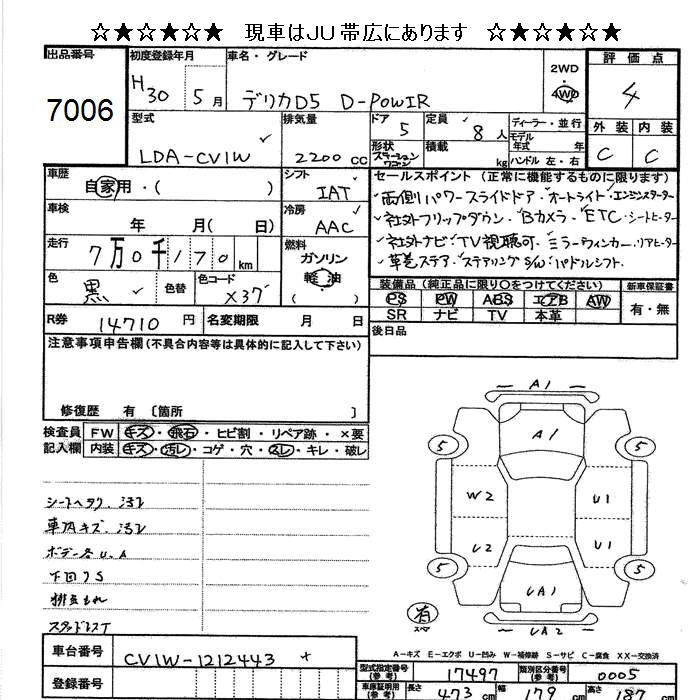 ☆★☆★☆★ 現車はJU帯広にあります ☆★☆★☆★
出品番号
7006
初度登録年月
H30 5月
車名・グレード
デリカD5 D-POWIR
2WD
4WD
評価点
4
外装 内装
C C
型式
LDA-CV1W
排気量
2200 cc
ドア
5
形状
ステーションワゴン
定員
8人
積載
kg
ディーラー・並行
モデル年式 年
ハンドル 左・右
車歴
自家用・( )
シフト
IAT
車検
年 月( 日)
冷房
AAC
走行
7万0千170km
燃料
ガソリン
軽油
色
黒
色替
色コード
X37
R券
14710円
名変期限 月 日
セールスポイント (正常に機能するものに限ります)
両側パワースライドドア・オートライト・エンジンスターター
社外フリップダウン・Bカメラ・ETC・シートヒーター
社外ナビ・TV視聴可・ミラーウィンカー・リアヒーター
革巻ステア・ステアリングSW・パドルシフト
装備品 (純正品に限り○をつけてください)
PS PW ABS エアB AW
SR ナビ TV 本革
新車保証書
有・無
後日品
注意事項申告欄 (不具合内容等は具体的に記入して下さい)
修復歴 有 〔箇所 〕
検査員記入欄
FW キズ・飛石・ヒビ割・リペア跡・×要
内装 キズ・汚レ・コゲ・穴・スレ・キレ・破レ
シートヘタリ、汚れ
車内キズ、汚れ
ボデー各U、A
下回りS
排気もれ
スタッドレスT
A1
A1
5 5
W2 U1
U2 U1
5 5
UA1
有
スペア
UA2
A-キズ E-エクボ U-凹み W-補修跡 S-サビ C-腐食 XX-交換済
車台番号
CV1W-1212443
登録番号
型式指定番号(参考)
17497
類別区分番号(参考)
0005
車庫証明用(参考)
長さ 473cm 幅 179cm 高さ 187cm